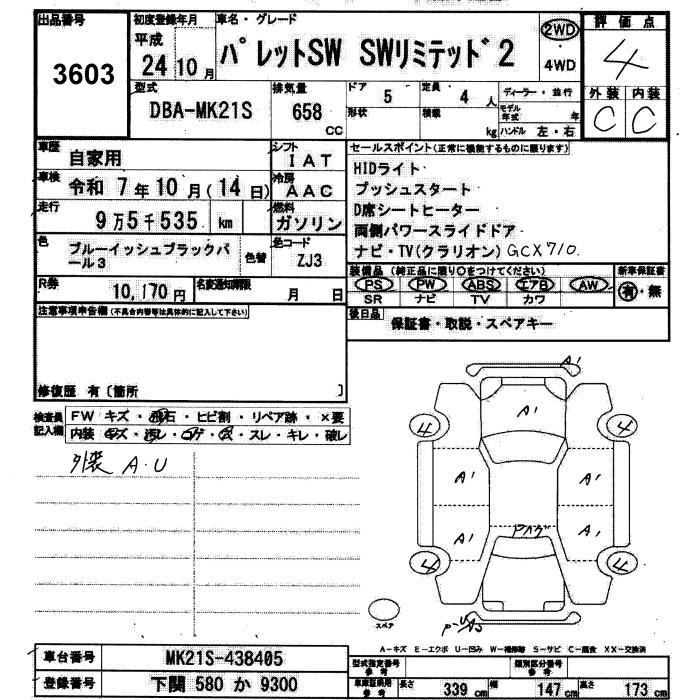 出品番号 初度登録年月 車名・グレード 評価点
3603 平成 24 10月 パレットSW SWリミテッド2 2WD ・ 4WD 4
型式 DBA-MK21S 排気量 658 CC
ドア 5 定員 4人 ディーラー・並行
形状 積載 kg モデル年式 年 ハンドル 左・右
外装 内装
C C
車歴 自家用 シフト IAT
車検 令和 7年10月(14日) 冷房 AAC
走行 9万5千535 km 燃料 ガソリン
色 ブルーイッシュブラックパール3 色替 色コード ZJ3
R券 10,170円 名変通知期限 月 日
セールスポイント(正常に機能するものに限ります)
HIDライト
プッシュスタート
D席シートヒーター
両側パワースライドドア
ナビ・TV(クラリオン) GCX710.
装備品(純正品に限り○をつけてください) 新車保証書
PS PW ABS エアB AW 有・無
SR ナビ TV カワ
後日品 保証書・取説・スペアキー
注意事項申告欄(不具合内容等は具体的に記入して下さい)
修復歴 有〔箇所 〕
検査員記入欄 FW キズ・飛石・ヒビ割・リペア跡・×要
内装 キズ・汚レ・コゲ・穴・スレ・キレ・破レ
外装 A・U
A1
A1
4 4
A1 A1
A1 A1
4 4
スペア
A-キズ E-エクボ U-凹み W-補修跡 S-サビ C-腐食 XX-交換済
車台番号 MK21S-438405
登録番号 下関 580 か 9300
型式指定番号 参考 類別区分番号 参考
車庫証明用 参考 長さ 339cm 幅 147cm 高さ 173cm